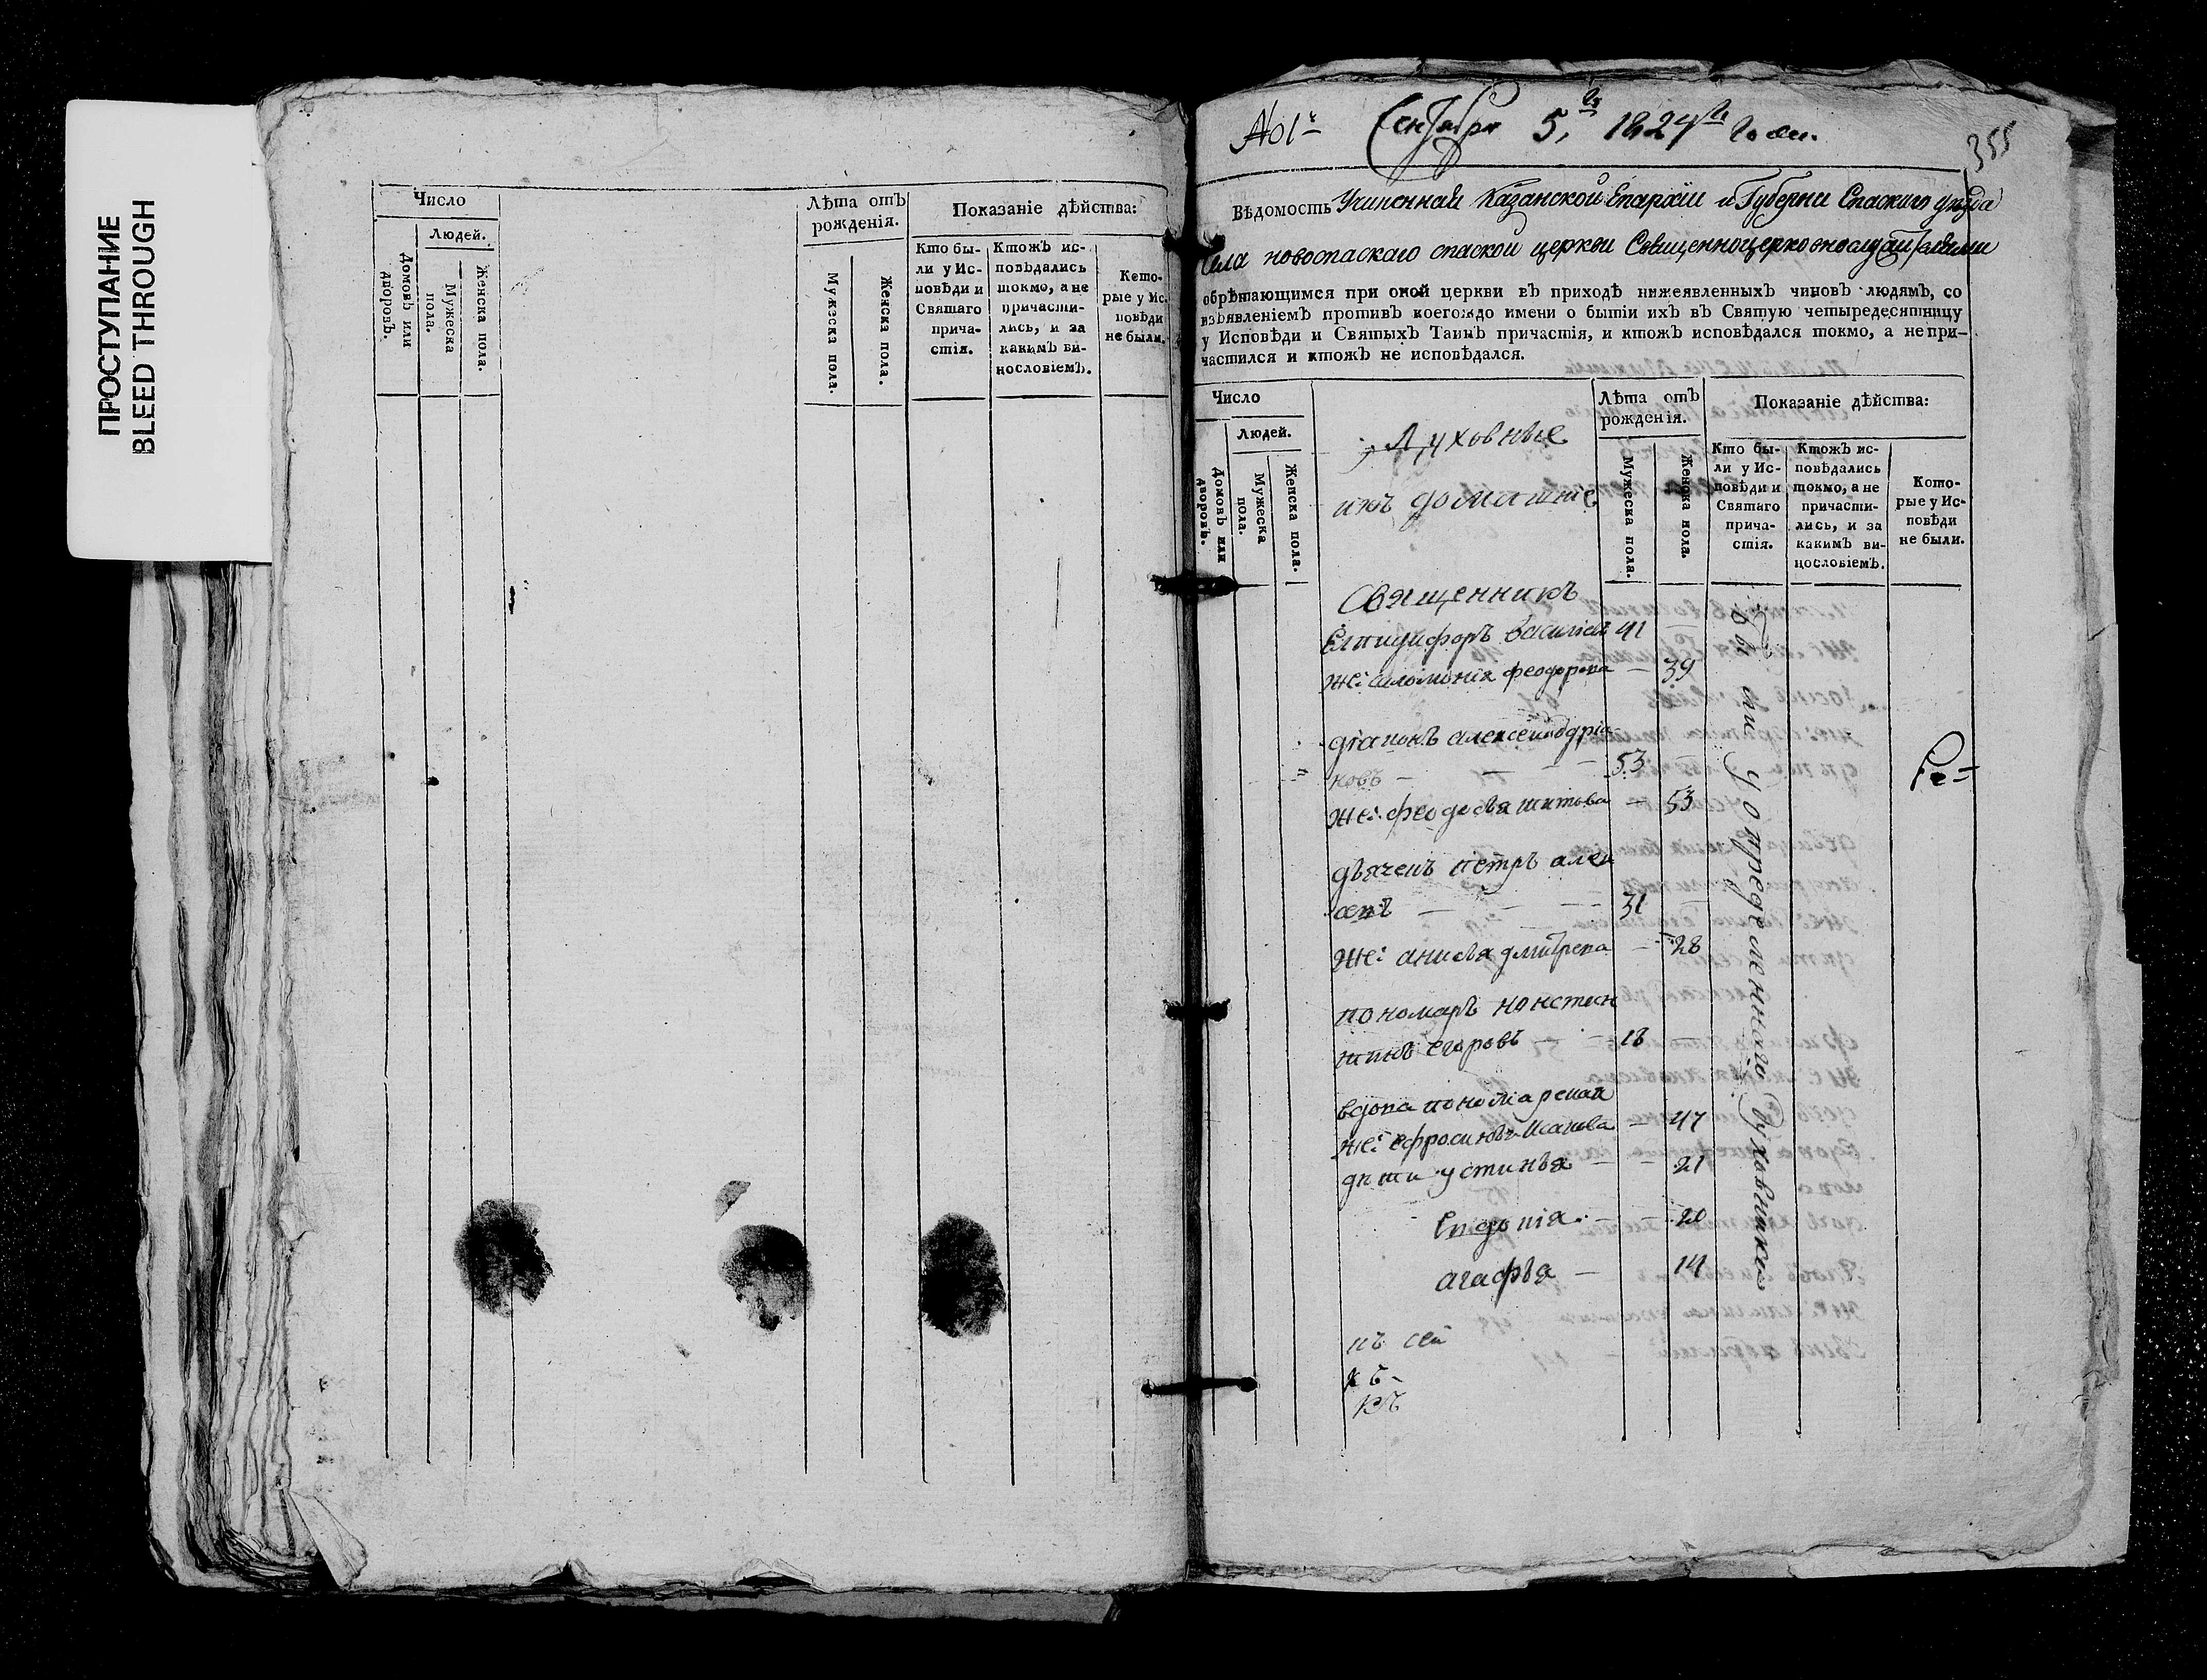 ПРОСТУПАНИЕ
BLEED THROUGH
Число
Людей.
Домовъ или дворовъ.
Мужеска пола.
Женска пола.
Лѣта отъ рожденія.
Мужеска пола.
Женска пола.
Показаніе дѣйства:
Кто бы-
ли у Ис-
повѣди и
Святаго
прича-
стія.
Ктожъ ис-
повѣдались
токмо, а не
причасти-
лись, и за
какимъ ви-
нословіемъ.
Кото-
рые у Ис-
повѣди
не были.
№ 1й Сентября 5го 1824го Года.
355
Вѣдомость Учиненная Казанской Епархіи и Губерни Спаскаго уезда
села новоспаскаго спаской церкви Священноцерковнослужительми
обрѣтающимся при оной церкви въ приходѣ нижеявленныхъ чиновъ людямъ, со
изъявленіемъ противъ коегождо имени о бытіи ихъ въ Святую четыредесятницу
у Исповѣди и Святыхъ Таинъ причастія, и ктожъ исповѣдался токмо, а не при-
частился и ктожъ не исповѣдался.
Число
Людей.
Домовъ или дворовъ.
Мужеска пола.
Женска пола.
Духовные
ихъ домашние
Лѣта отъ
рожденія.
Мужеска пола.
Женска пола.
Показаніе дѣйства:
Кто бы-
ли у Ис-
повѣди и
Святаго
прича-
стія.
Ктожъ ис-
повѣдались
токмо, а не
причасти-
лись, и за
какимъ ви-
нословіемъ.
Кото-
рые у Ис-
повѣди
не были.
Священникъ
Елпидифоръ Василіевъ 41
же: соломонія феодорова — 39
діаконъ алексей андріа
новъ — — — 53
же: феодосья титова — 53
дьячекъ петръ алек
сеевъ — — — 31
же: анисья дмитрева — 28
пономаръ констан
тинъ егоровъ — 18 —
вдова пономарская
же: ефросинья Исакова — 47
дѣти устинья — — 21
Евдокія — — 20
агафья — 14
Были у определеннаго духовника
къ сей
къ
къ